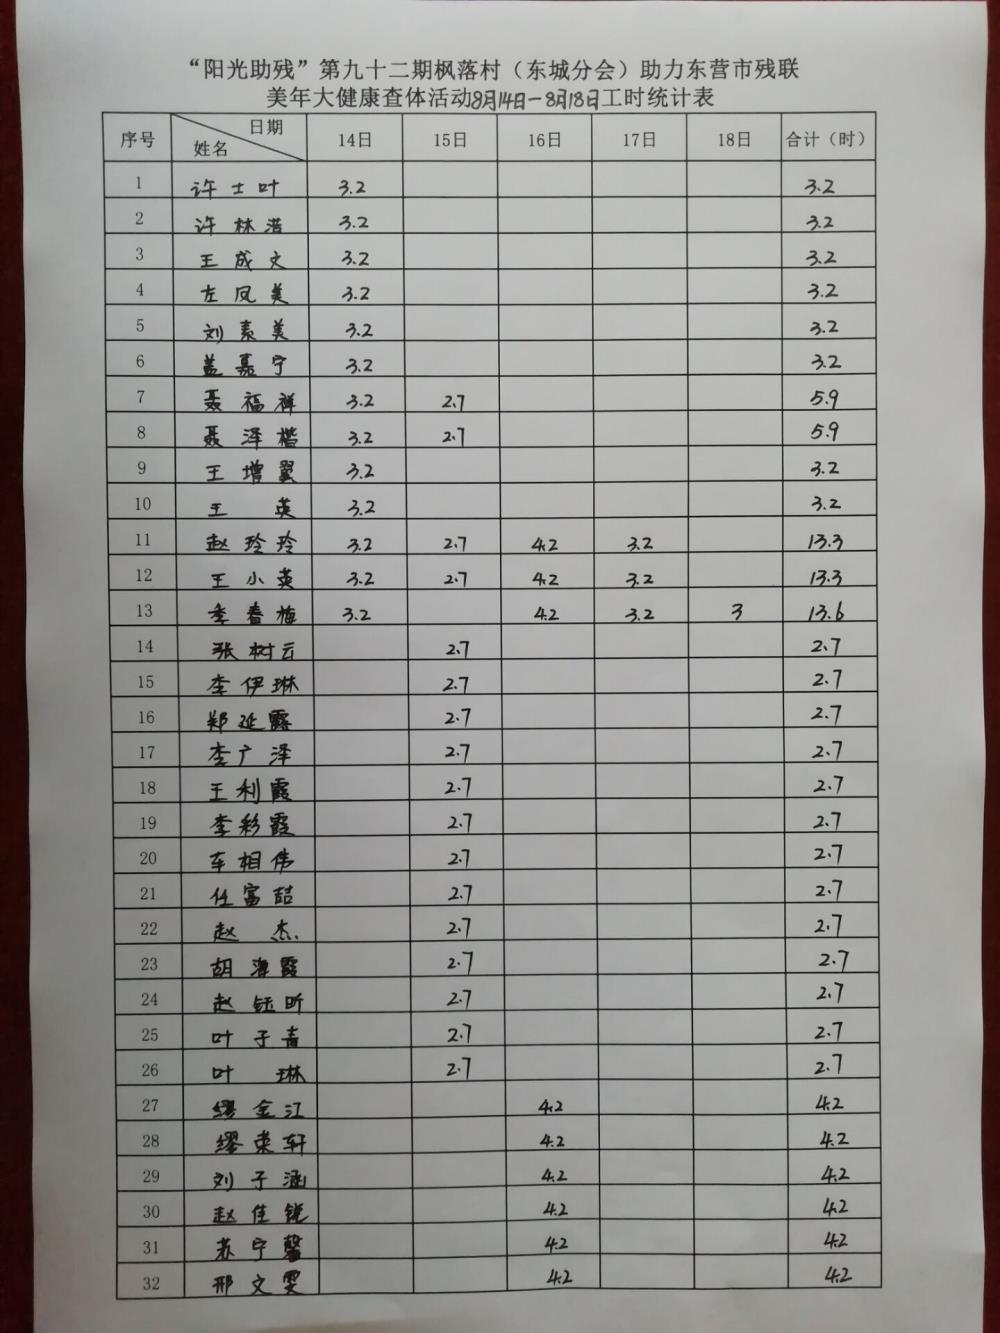 “阳光助残”第九十二期枫落村（东城分会）助力东营市残联
美年大健康查体活动8月14日-8月18日工时统计表
序号 日期 姓名 14日 15日 16日 17日 18日 合计（时）
1 许士叶 3.2 3.2
2 许林浩 3.2 3.2
3 王成文 3.2 3.2
4 左凤美 3.2 3.2
5 刘素美 3.2 3.2
6 盖嘉宁 3.2 3.2
7 聂福祥 3.2 2.7 5.9
8 聂泽楷 3.2 2.7 5.9
9 王增翼 3.2 3.2
10 王英 3.2 3.2
11 赵玲玲 3.2 2.7 4.2 3.2 13.3
12 王小英 3.2 2.7 4.2 3.2 13.3
13 季春梅 3.2 4.2 3.2 3 13.6
14 张树云 2.7 2.7
15 李伊琳 2.7 2.7
16 郑延露 2.7 2.7
17 李广泽 2.7 2.7
18 王利霞 2.7 2.7
19 李彩霞 2.7 2.7
20 车相伟 2.7 2.7
21 任富喆 2.7 2.7
22 赵杰 2.7 2.7
23 胡海霞 2.7 2.7
24 赵钰昕 2.7 2.7
25 叶子青 2.7 2.7
26 叶琳 2.7 2.7
27 缪金江 4.2 4.2
28 缪荣轩 4.2 4.2
29 刘子涵 4.2 4.2
30 赵佳锐 4.2 4.2
31 苏宁馨 4.2 4.2
32 邢文雯 4.2 4.2